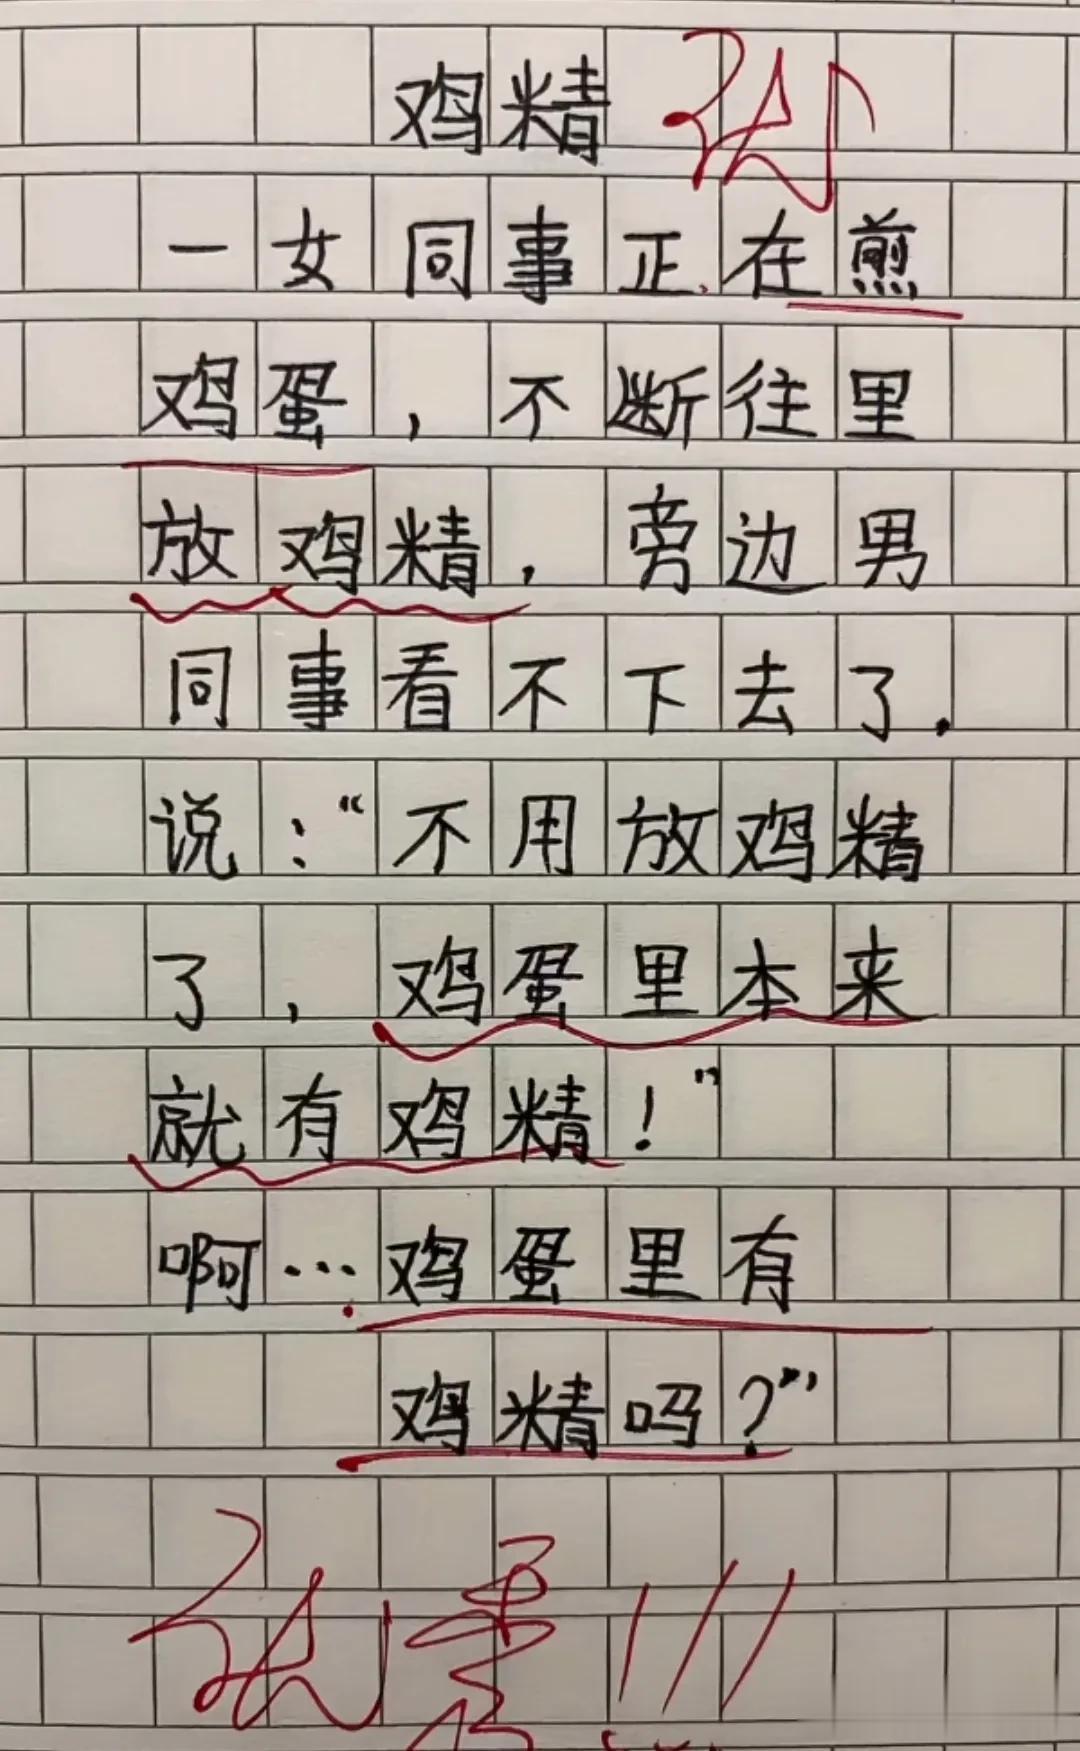 鸡精
一女同事正在煎
鸡蛋,不断往里
放鸡精,旁边男
同事看不下去了.
说:“不用放鸡精
了,鸡蛋里本来
就有鸡精!”
啊…鸡蛋里有
鸡精吗?”
!!!